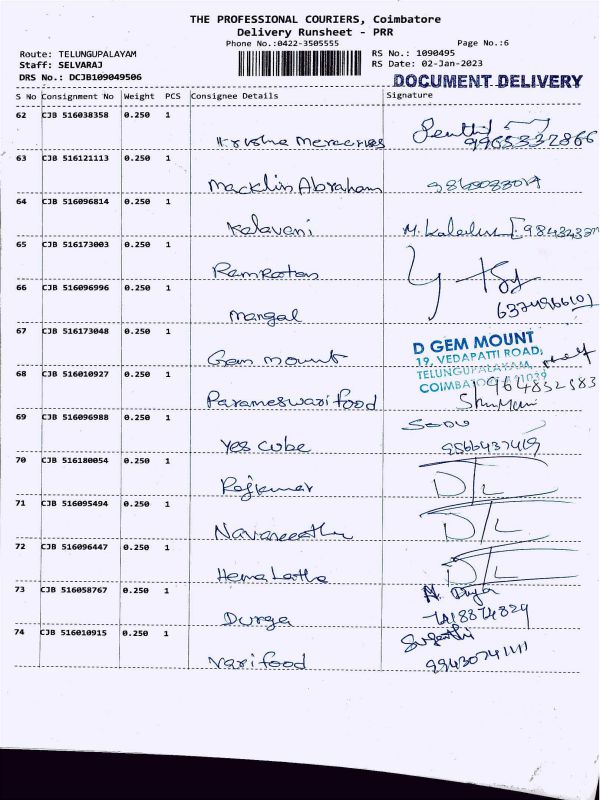 THE PROFESSIONAL COURIERS, Coimbatore
Delivery Runsheet - PRR
Phone No.:0422-3505555
Page No.:6
Route: TELUNGUPALAYAM
RS No.: 1090495
Staff: SELVARAJ
RS Date: 02-Jan-2023
DRS No.: DCJB109049506
DOCUMENT DELIVERY
S No Consignment No Weight PCS Consignee Details Signature
62 CJB 516038358 0.250 1
9965332866
63 CJB 516121113 0.250 1
Macklin Abraham
64 CJB 516096814 0.250 1
Kalavani
65 CJB 516173003 0.250 1
Ram Ratan
66 CJB 516096996 0.250 1
6374966101
Mangal
67 CJB 516173048 0.250 1
D GEM MOUNT
19, VEDAPATTI ROAD,
Gem mount
TELUNGUPALAYAM,
68 CJB 516010927 0.250 1
Parameswari food
69 CJB 516096988 0.250 1
Yes cube
9566437419
70 CJB 516180054 0.250 1
Rajkumar
D/L
71 CJB 516095494 0.250 1
D/L
72 CJB 516096447 0.250 1
Hema Latha
D/L
73 CJB 516058767 0.250 1
Durga
7418874829
74 CJB 516010915 0.250 1
Suganthi
Nari food